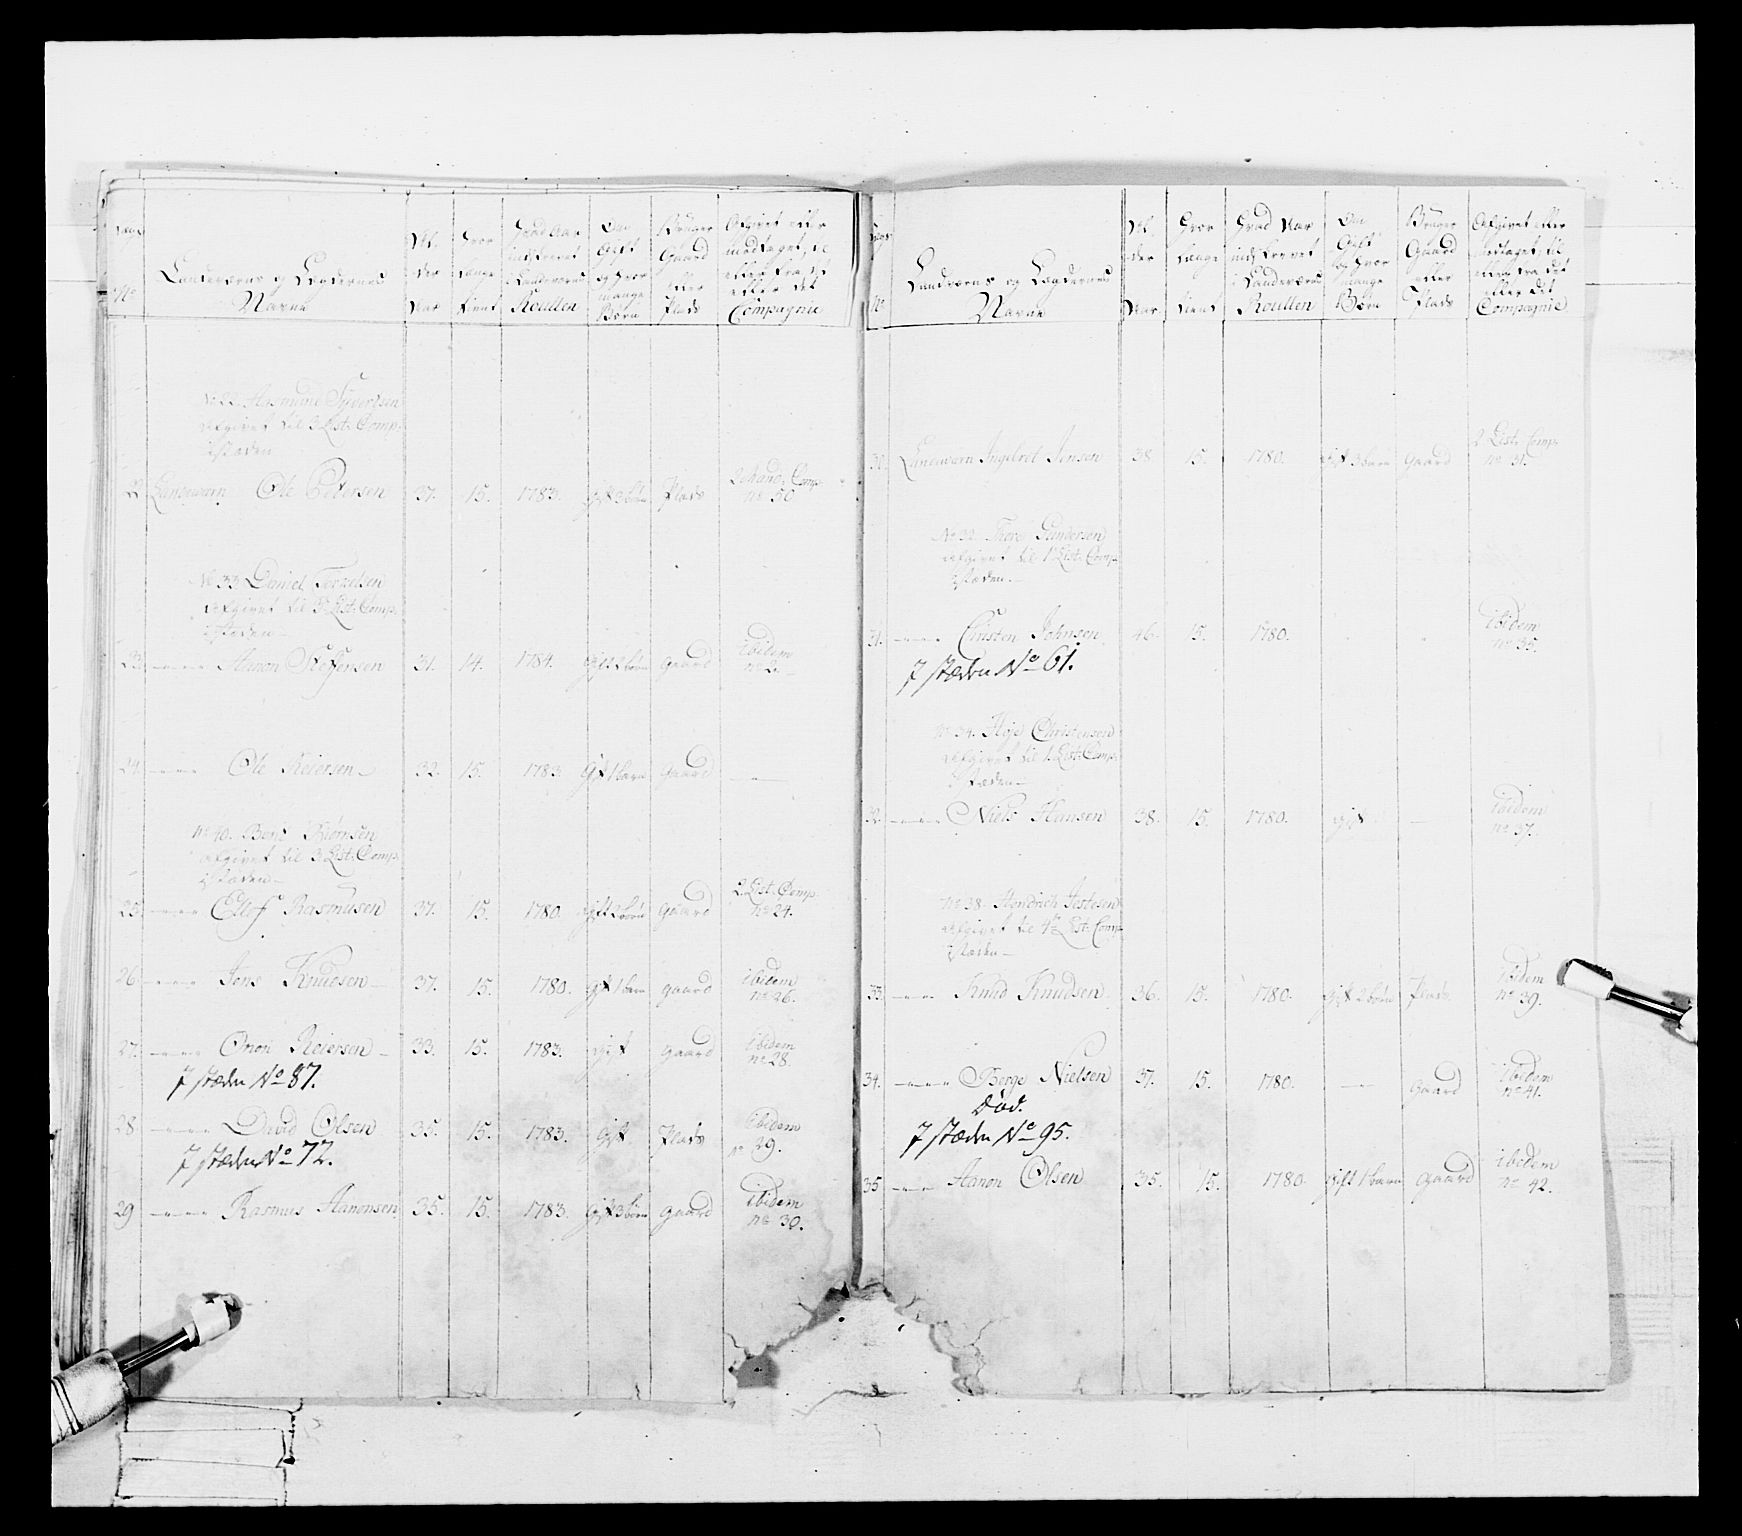 No
Landeværns og Lægdernes
Navne
Al-
der
Aar
Hvor
længe
tient
Hvad Aar
indskrevet
i Landeværns
Roullen
Om
Gift
og hvor
mange
Børn
Bruger
Gaard
eller
Plads
Afgivet eller
modtaget, til
eller fra det
eller det
Compagnie
No 22. Aasmund Syvertsen
afgivet til 3 List: Comp.
istæden
22. Landeværn Ole Petersen 37. 15. 1783. gift 3 børn Plads 2 Mand: Comp.
no 50
No 33. Daniel Ternelsen
afgivet til 3 List: Comp.
istæden
23. Aanon Steffensen 31. 14. 1784. gift 2 børn gaard ibidem
no 2.
24. Ole Reiersen 32. 15. 1783 gift 1 barn gaard
no 40. Bent Biørnsen
afgivet til 3 List: Comp.
istæden
25. Ellef Rasmusen 37. 15. 1780. gift 2 børn gaard 2 List: Comp.
no 24.
26. Jens Knudsen 37. 15. 1780. gift 1 barn gaard ibidem
no 26.
27. Onon Reiersen 33. 15. 1783. gift gaard ibidem
no 28.
I stæden No 87.
28. David Olsen 35. 15. 1783. gift Plads ibidem
no 29.
I stæden No 72.
29 Rasmus Aanonsen 35. 15. 1783. gift 3 børn gaard ibidem
no 30.
No
Landeværns og Lægdernes
Navne
Al-
der
Aar
Hvor
længe
tient
Hvad Aar
indskrevet
i Landeværns
Roullen
Om
Gift
og hvor
mange
Børn
Bruger
Gaard
eller
Plads
Afgivet eller
modtaget, til
eller fra det
eller det
Compagnie
30. Landeværn Ingebret Jensen 38. 15. 1780. gift 3 børn gaard 2 List: Comp.
no 31.
No 32. Thore Gundersen
afgivet til 1 List: Comp.
istæden
31. Christen Johnsen 46. 15. 1780. ibidem
no 35.
I stæden No 61.
no 34. Christensen
afgivet til 1 List: Comp.
istæden
32. Niels Hansen 38. 15. 1780. gift ibidem
no 37.
no 38. Hendrich Jestesen
afgivet til 4 List: Comp.
istæden
33. Knud Knudsen 36. 15. 1780. gift 2 børn Plads ibidem
no 39.
34. Berge Nielsen 37. 15. 1780. gaard ibidem
no 41.
død.
I stæden No 95.
35 Aanon Olsen 35. 15. 1780 gift 1 barn gaard ibidem
no 42.